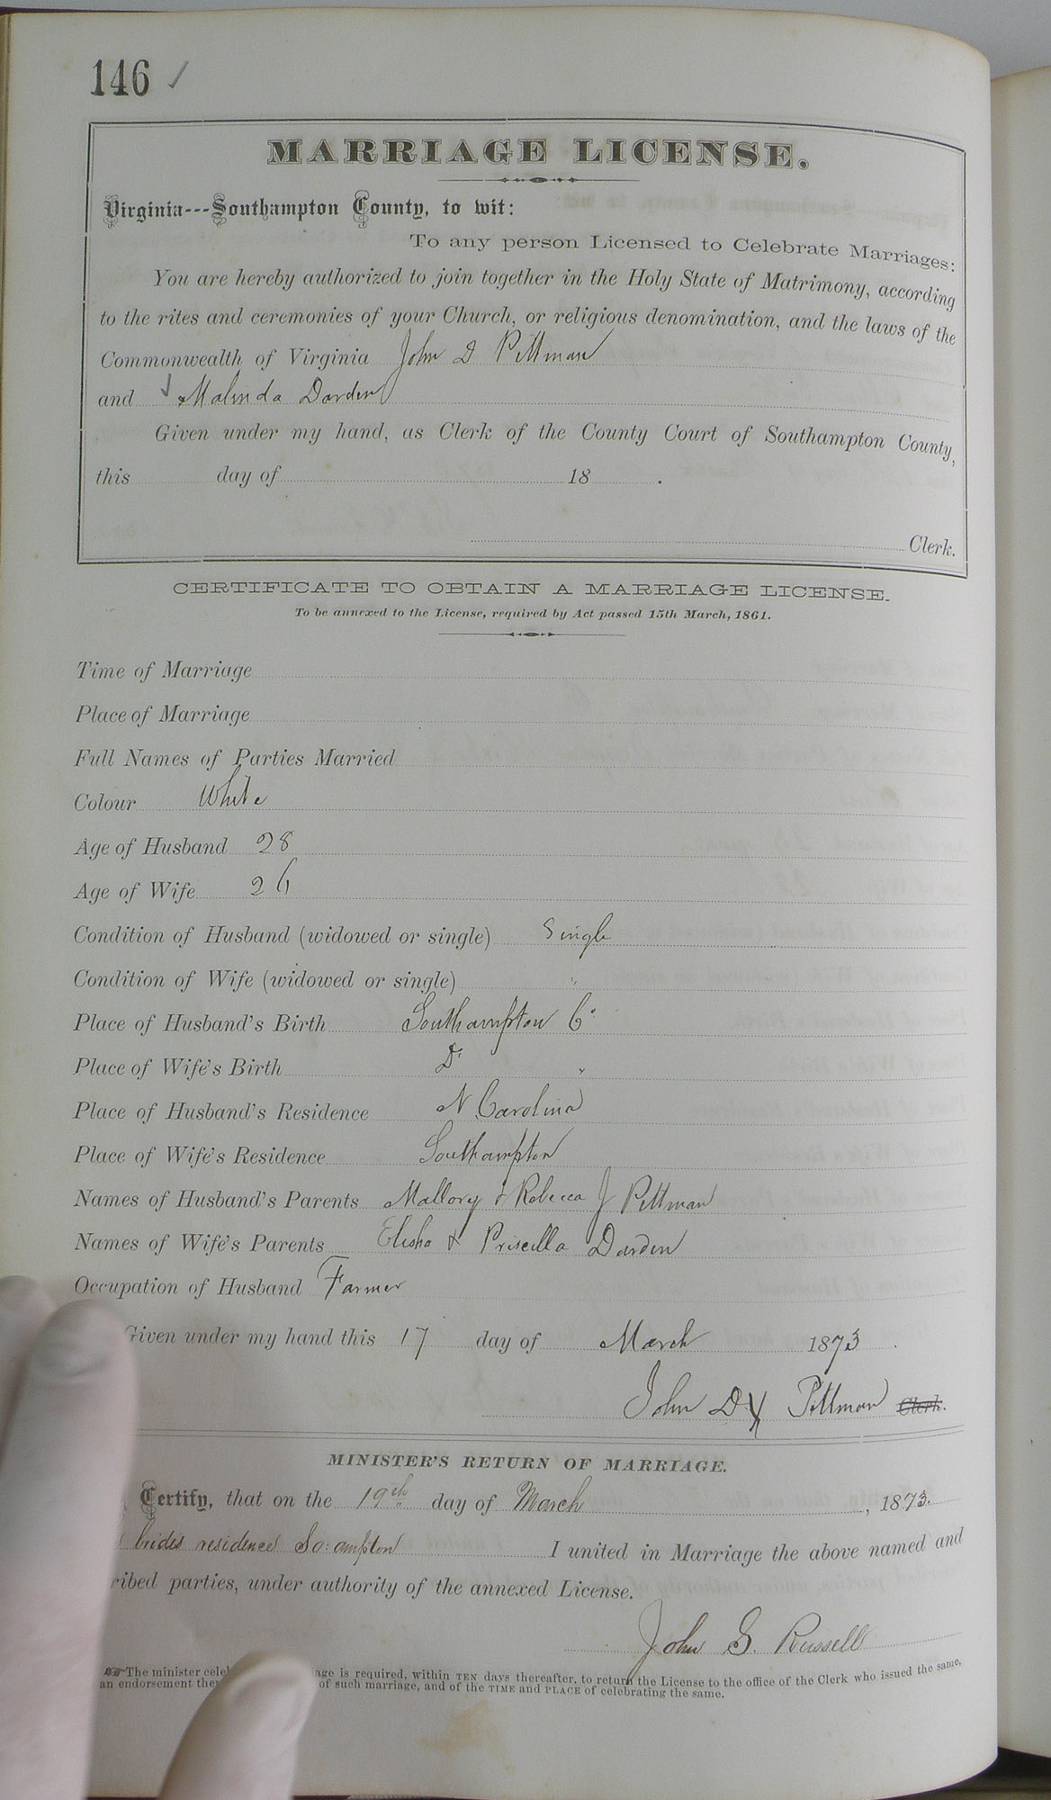 146 ✓
MARRIAGE LICENSE.
Virginia---Southampton County, to wit:
To any person Licensed to Celebrate Marriages:
You are hereby authorized to join together in the Holy State of Matrimony, according
to the rites and ceremonies of your Church, or religious denomination, and the laws of the
Commonwealth of Virginia John D Pittman
and ✓ Malinda Darden
Given under my hand, as Clerk of the County Court of Southampton County,
this day of 18 .
Clerk.
CERTIFICATE TO OBTAIN A MARRIAGE LICENSE.
To be annexed to the License, required by Act passed 15th March, 1861.
Time of Marriage
Place of Marriage
Full Names of Parties Married
Colour White
Age of Husband 28
Age of Wife 26
Condition of Husband (widowed or single) Single
Condition of Wife (widowed or single) "
Place of Husband's Birth Southampton Co
Place of Wife's Birth Do "
Place of Husband's Residence N Carolina
Place of Wife's Residence Southampton
Names of Husband's Parents Mallory & Rebecca J Pittman
Names of Wife's Parents Elisha & Priscilla Darden
Occupation of Husband Farmer
Given under my hand this 17 day of March 1873 .
John D X Pittman Clerk.
MINISTER'S RETURN OF MARRIAGE.
Certify, that on the 19th day of March , 1873.
brides residence So:ampton I united in Marriage the above named and
ribed parties, under authority of the annexed License.
John G. Russell
☞ The minister cele age is required, within TEN days thereafter, to return the License to the office of the Clerk who issued the same,
an endorsement the of such marriage, and of the TIME and PLACE of celebrating the same.